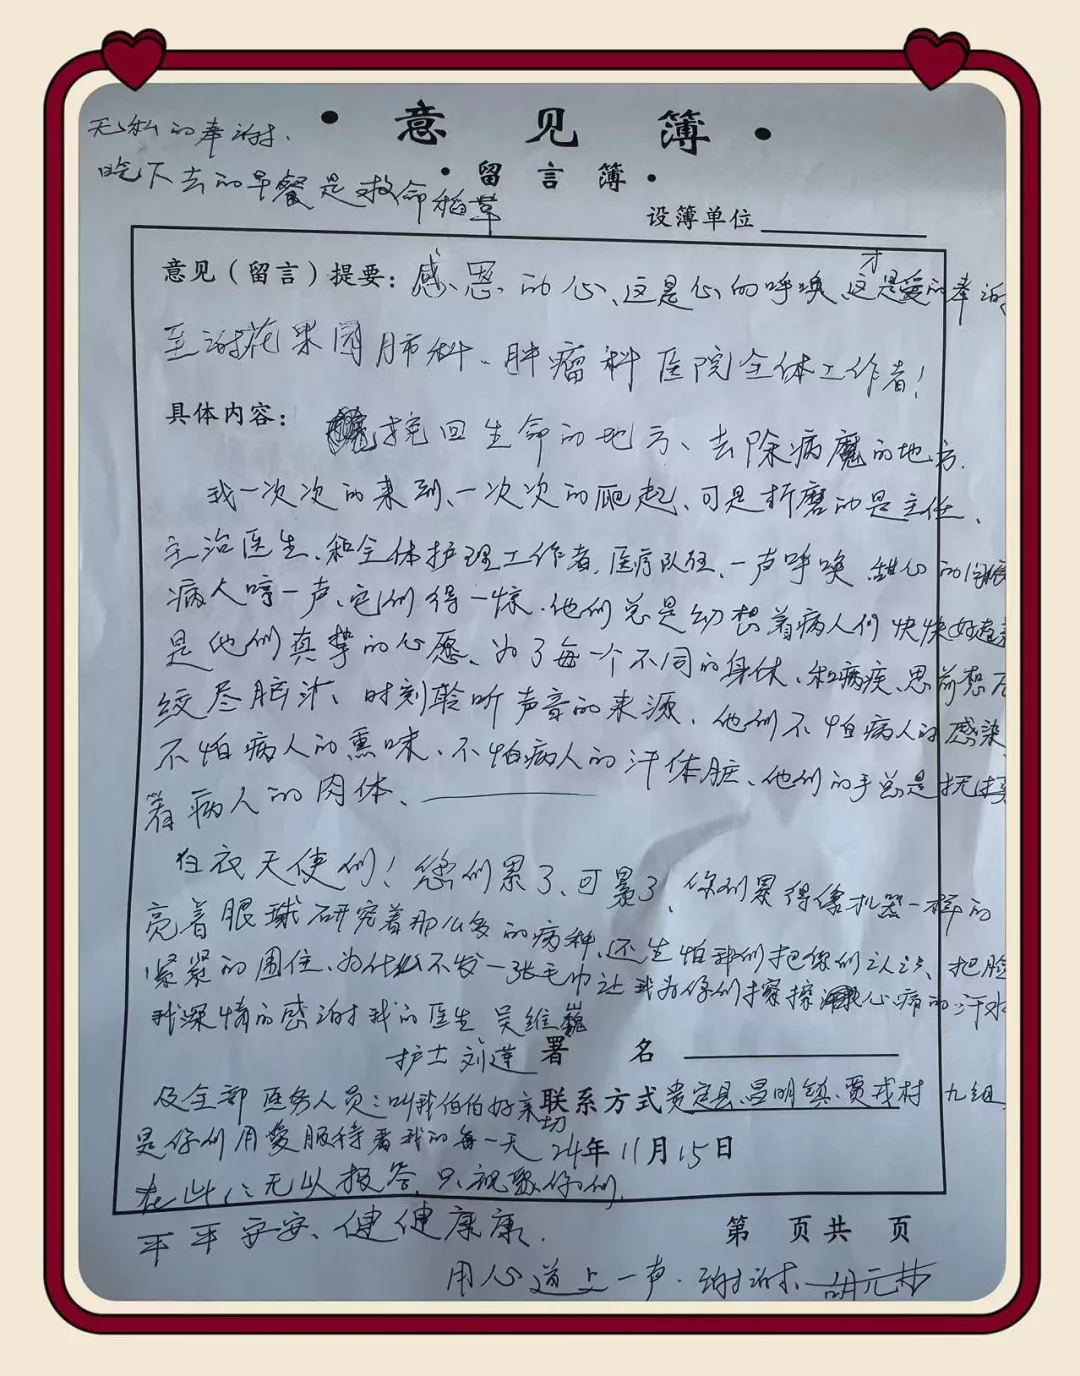 无私的奉谢.
吃下去的早餐是救命稻草
·意见簿·
·留言簿·
设簿单位
意见（留言）提要：感恩的心、这是心的呼唤、这才是爱的奉谢
至谢花果园肺科、肿瘤科医院全体工作者！
具体内容：挽回生命的地方、去除病魔的地方.
我一次次的来到、一次次的爬起、可是折磨的是主任、
主治医生、和全体护理工作者.医疗队伍、一声呼唤.甜心的问候
病人哼一声、它们得一惊.他们总是幻想着病人们快快好起来
是他们真挚的心愿、为了每一个不同的身体、和病疾、思前想后
绞尽脑汁、时刻聆听声音的来源.他们不怕病人的感染
不怕病人的熏味、不怕病人的汗体脏、他们的手总是抚摸
着病人的肉体、
白衣天使们！您们累了、可累了、你们累得像机器一样的
亮着眼球研究着那么多的病种、还生怕我们把你们认识、把脸
紧紧的围住、为什么不发一张毛巾让我为你们擦擦心病的汗水
我深情的感谢我的医生 吴维巍
护士 刘莲 署名
及全部医务人员：叫我伯伯好亲切 联系方式 贵定县.昌明镇.贾戎村 九组
是你们用爱服待着我的每一天 24年11月15日
在此：无以报答.只祝愿你们.
平平安安、健健康康. 第 页共 页
用心道上一声.谢谢. 胡元